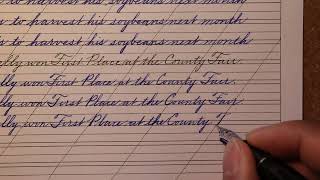 to harvest his soybeans next month
s to harvest his soybeans next month
s to harvest his soybeans next month
lly won First Place at the County Fair.
lly won First Place at the County Fair.
lly won First Place at the County Fair.
lly won First Place at the County F